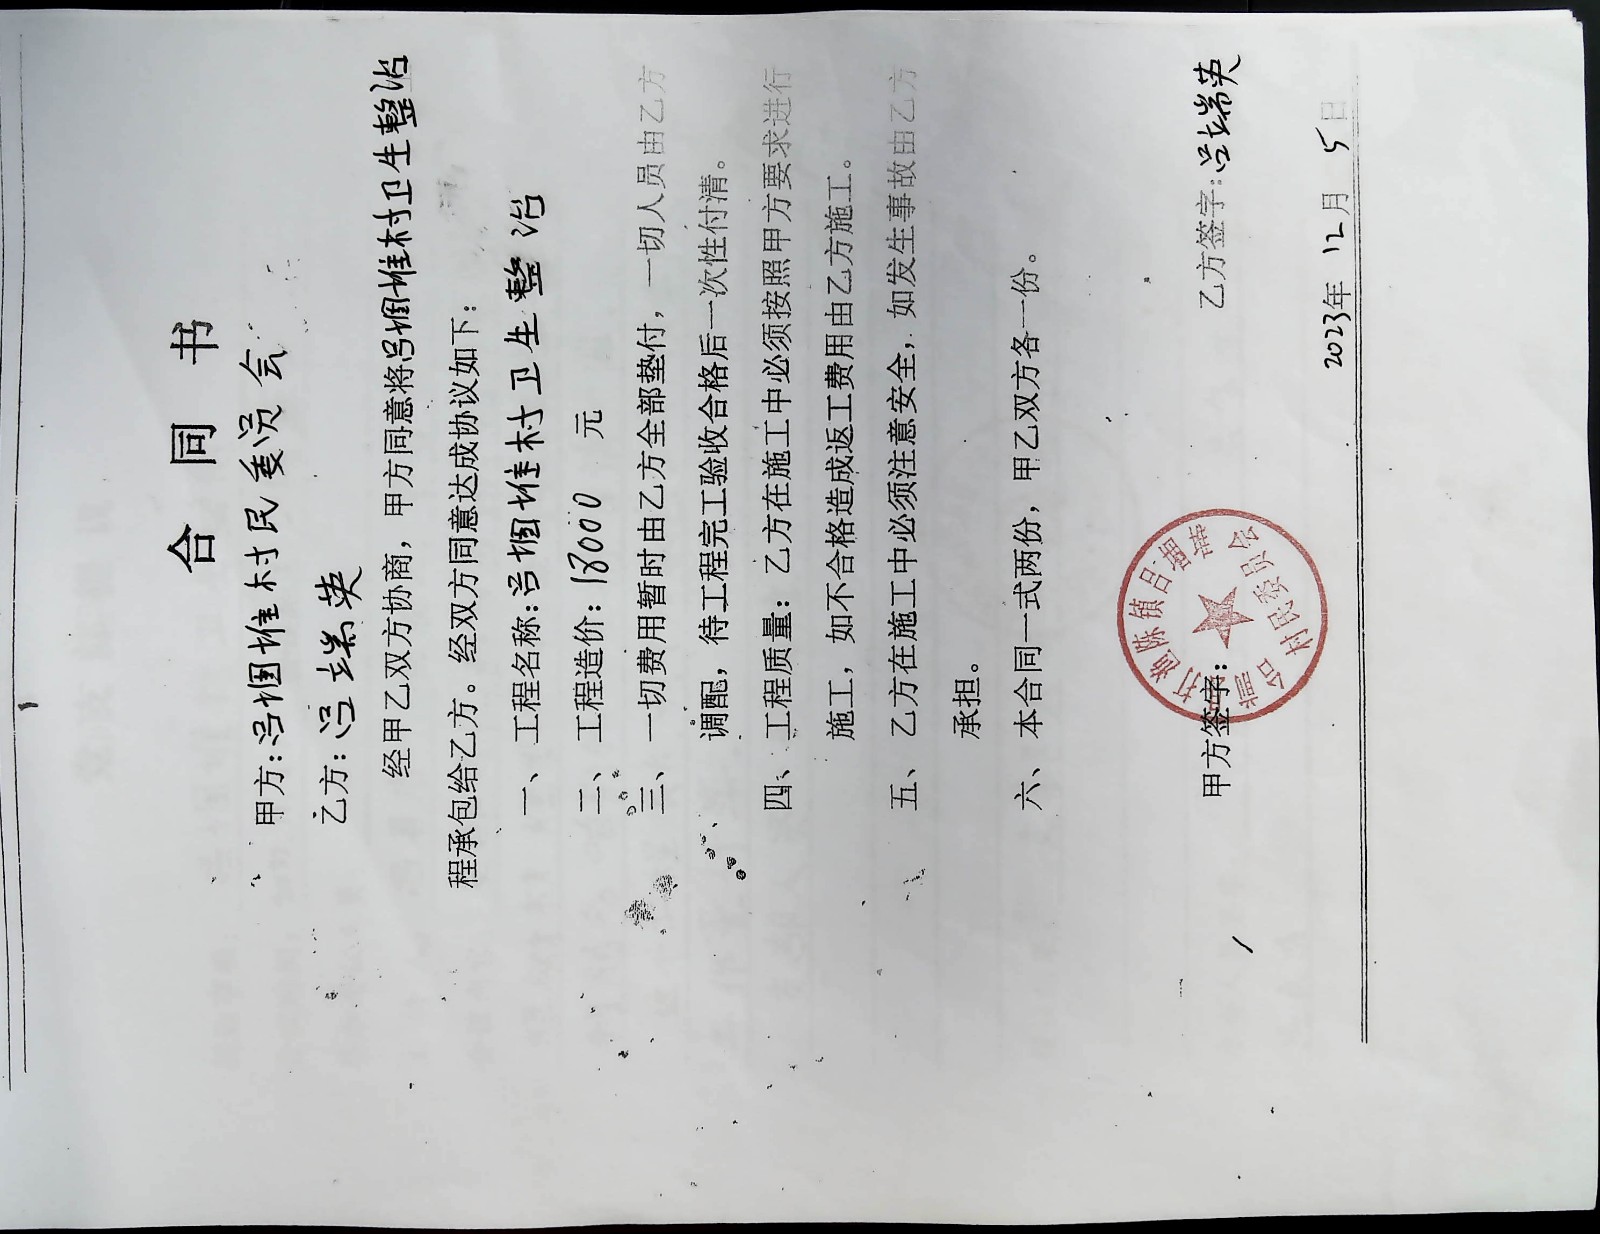 合同书
甲方：吕堌堆村民委员会
乙方：吕端英
经甲乙双方协商，甲方同意将吕堌堆村卫生整治
程承包给乙方。经双方同意达成协议如下：
一、工程名称：吕堌堆村卫生整治
二、工程造价：18000 元
三、一切费用暂时由乙方全部垫付，一切人员由乙方
调配，待工程完工验收合格后一次性付清。
四、工程质量：乙方在施工中必须按照甲方要求进行
施工，如不合格造成返工费用由乙方施工。
五、乙方在施工中必须注意安全，如发生事故由乙方
承担。
六、本合同一式两份，甲乙双方各一份。
甲方签字： 乙方签字：吕端英
打渔陈镇吕堌堆
村民委员会
2023年12月5日